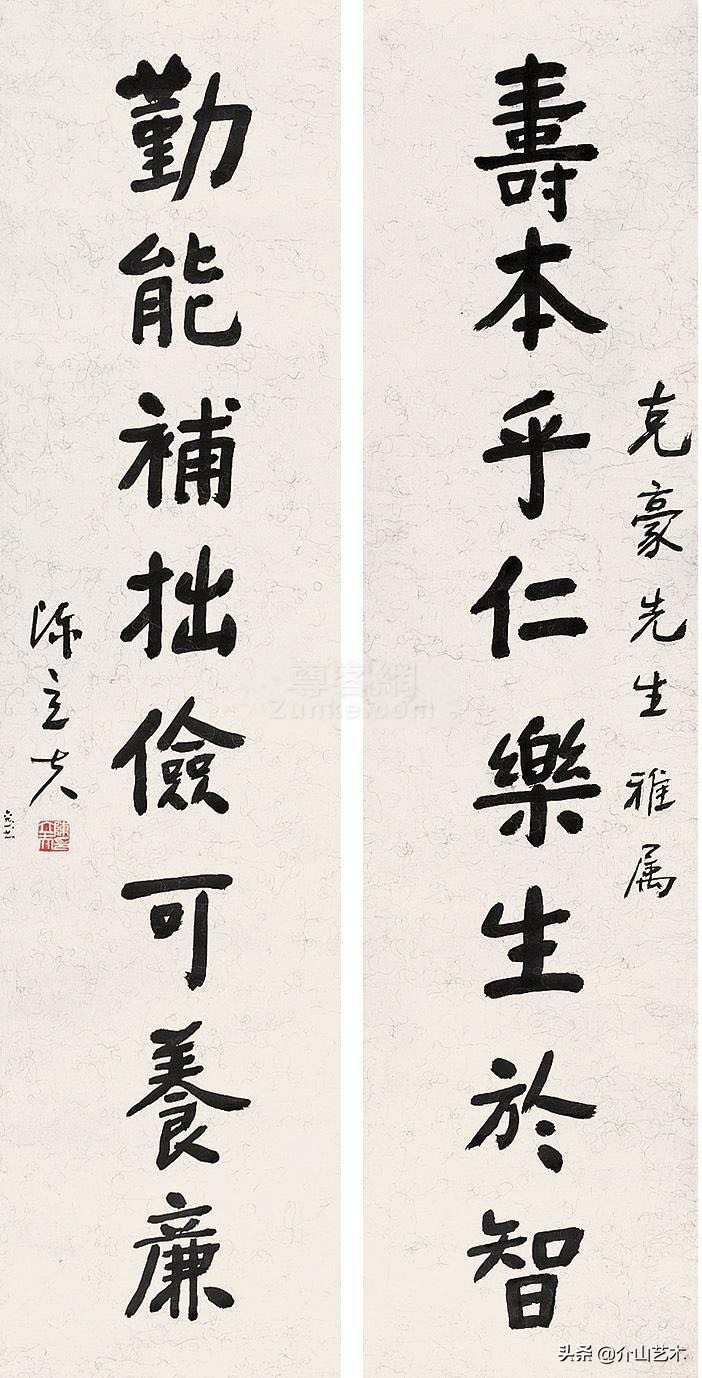 克豪先生雅属
壽本乎仁樂生於智
勤能補拙儉可養廉
陳立夫
尊客網
Zunke.com
头条 @介山艺术